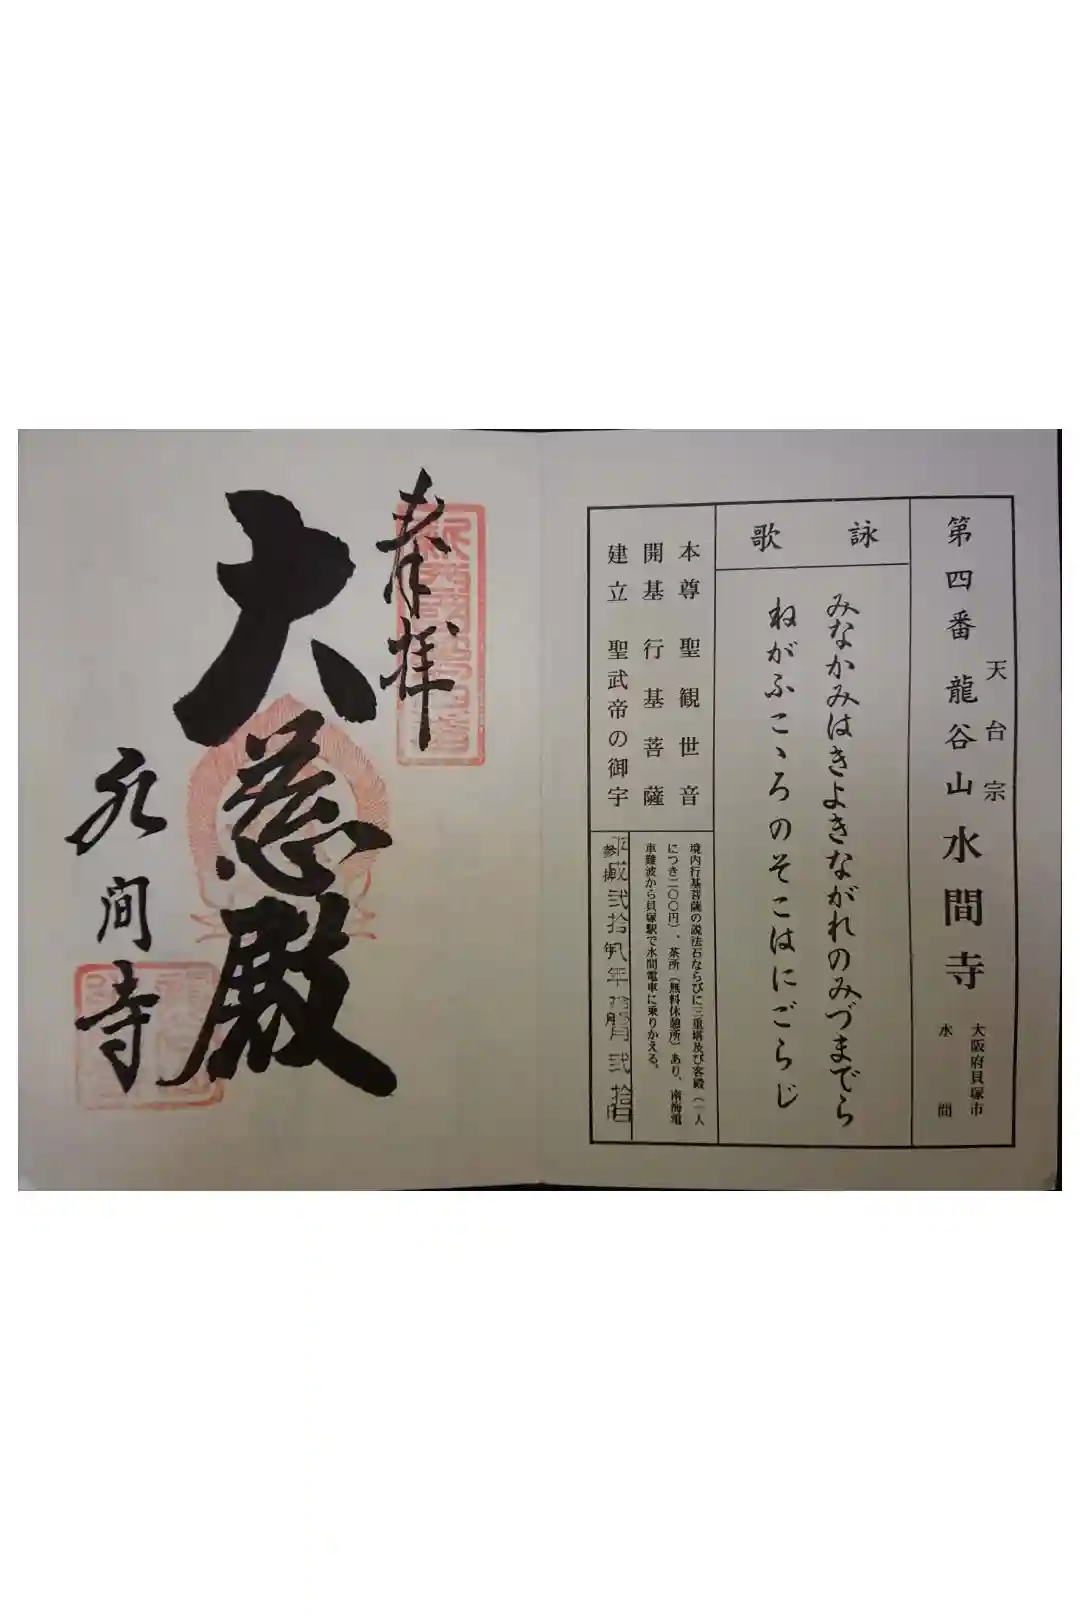 天台宗
第四番 龍谷山 水間寺
大阪府貝塚市
水間
詠歌
みなかみはきよきながれのみづまでら
ねがふこゝろのそこはにごらじ
本尊 聖観世音
開基 行基菩薩
建立 聖武帝の御宇
境内行基菩薩の説法石ならびに三重塔及び客殿（一人
につき二〇〇円）、茶所（無料休憩所）あり、南海電
車難波から貝塚駅で水間電車に乗りかえる。
参拝
平成弐拾八年
弐拾日
奉拝
大慈殿
水間寺